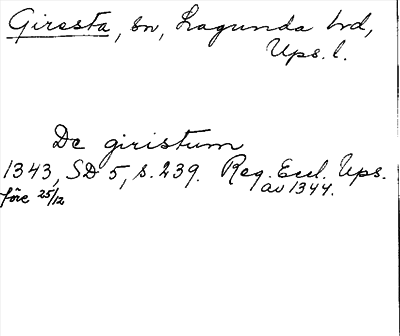 Giresta, sn, Lagunda hd,
Ups. l.
De giristum
1343, SD 5, s. 239. Reg. Eccl. Ups.
före 25/12 av 1344.